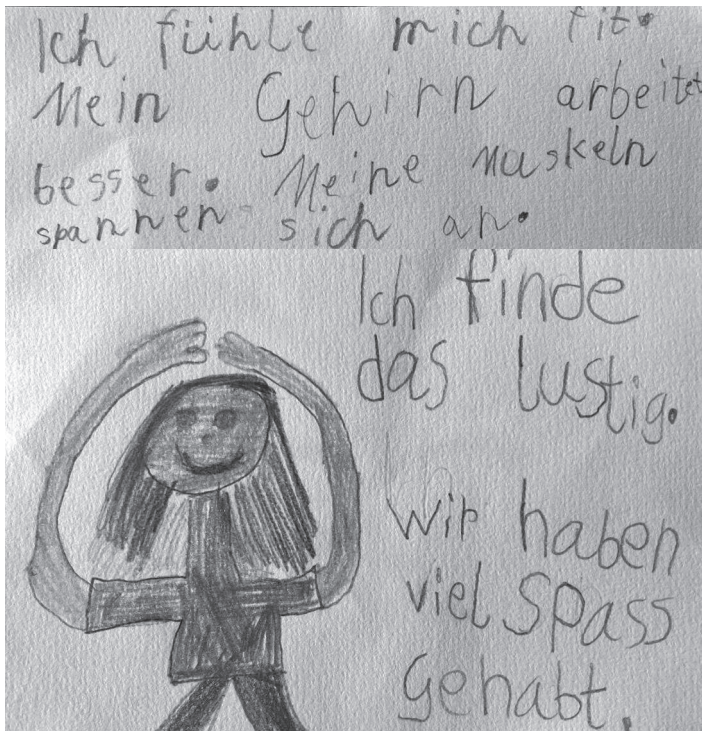 Ich fühle mich fit.
Mein Gehirn arbeitet
besser. Meine Muskeln
spannen sich an.
Ich finde
das lustig.
Wir haben
viel Spass
gehabt.